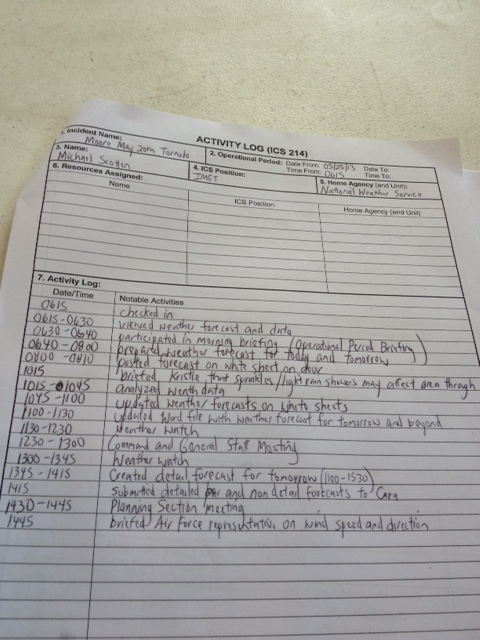 ACTIVITY LOG (ICS 214)
1. Incident Name: Moore May 20th Tornado
2. Operational Period: Date From: 05/25/13 Date To:
Time From: 0615 Time To:
3. Name: Michael Scotten
4. ICS Position: IMET
5. Home Agency (and Unit): National Weather Service
6. Resources Assigned:
Name ICS Position Home Agency (and Unit)
7. Activity Log:
Date/Time Notable Activities
0615 checked in
0615-0630 viewed weather forecast and data
0630-0640 participated in morning briefing (Operational Period Briefing)
0640-0800 prepared weather forecast for today and tomorrow
0800-0810 posted forecast on white sheet on door
1015 briefed Kristie that sprinkles/light rain showers may affect area through
1015-1045 analyzed weath data
1045-1100 updated weather forecasts on white sheets
1100-1130 updated Word file with weather forecast for tomorrow and beyond
1130-1230 Weather watch
1230-1300 Command and General Staff Meeting
1300-1345 Weather watch
1345-1415 Created detail forecast for tomorrow (1100-1530)
1415 Submitted detailed and non detail forecasts to Cara
1430-1445 Planning Section meeting
1445 briefed Air Force representative on wind speed and direction